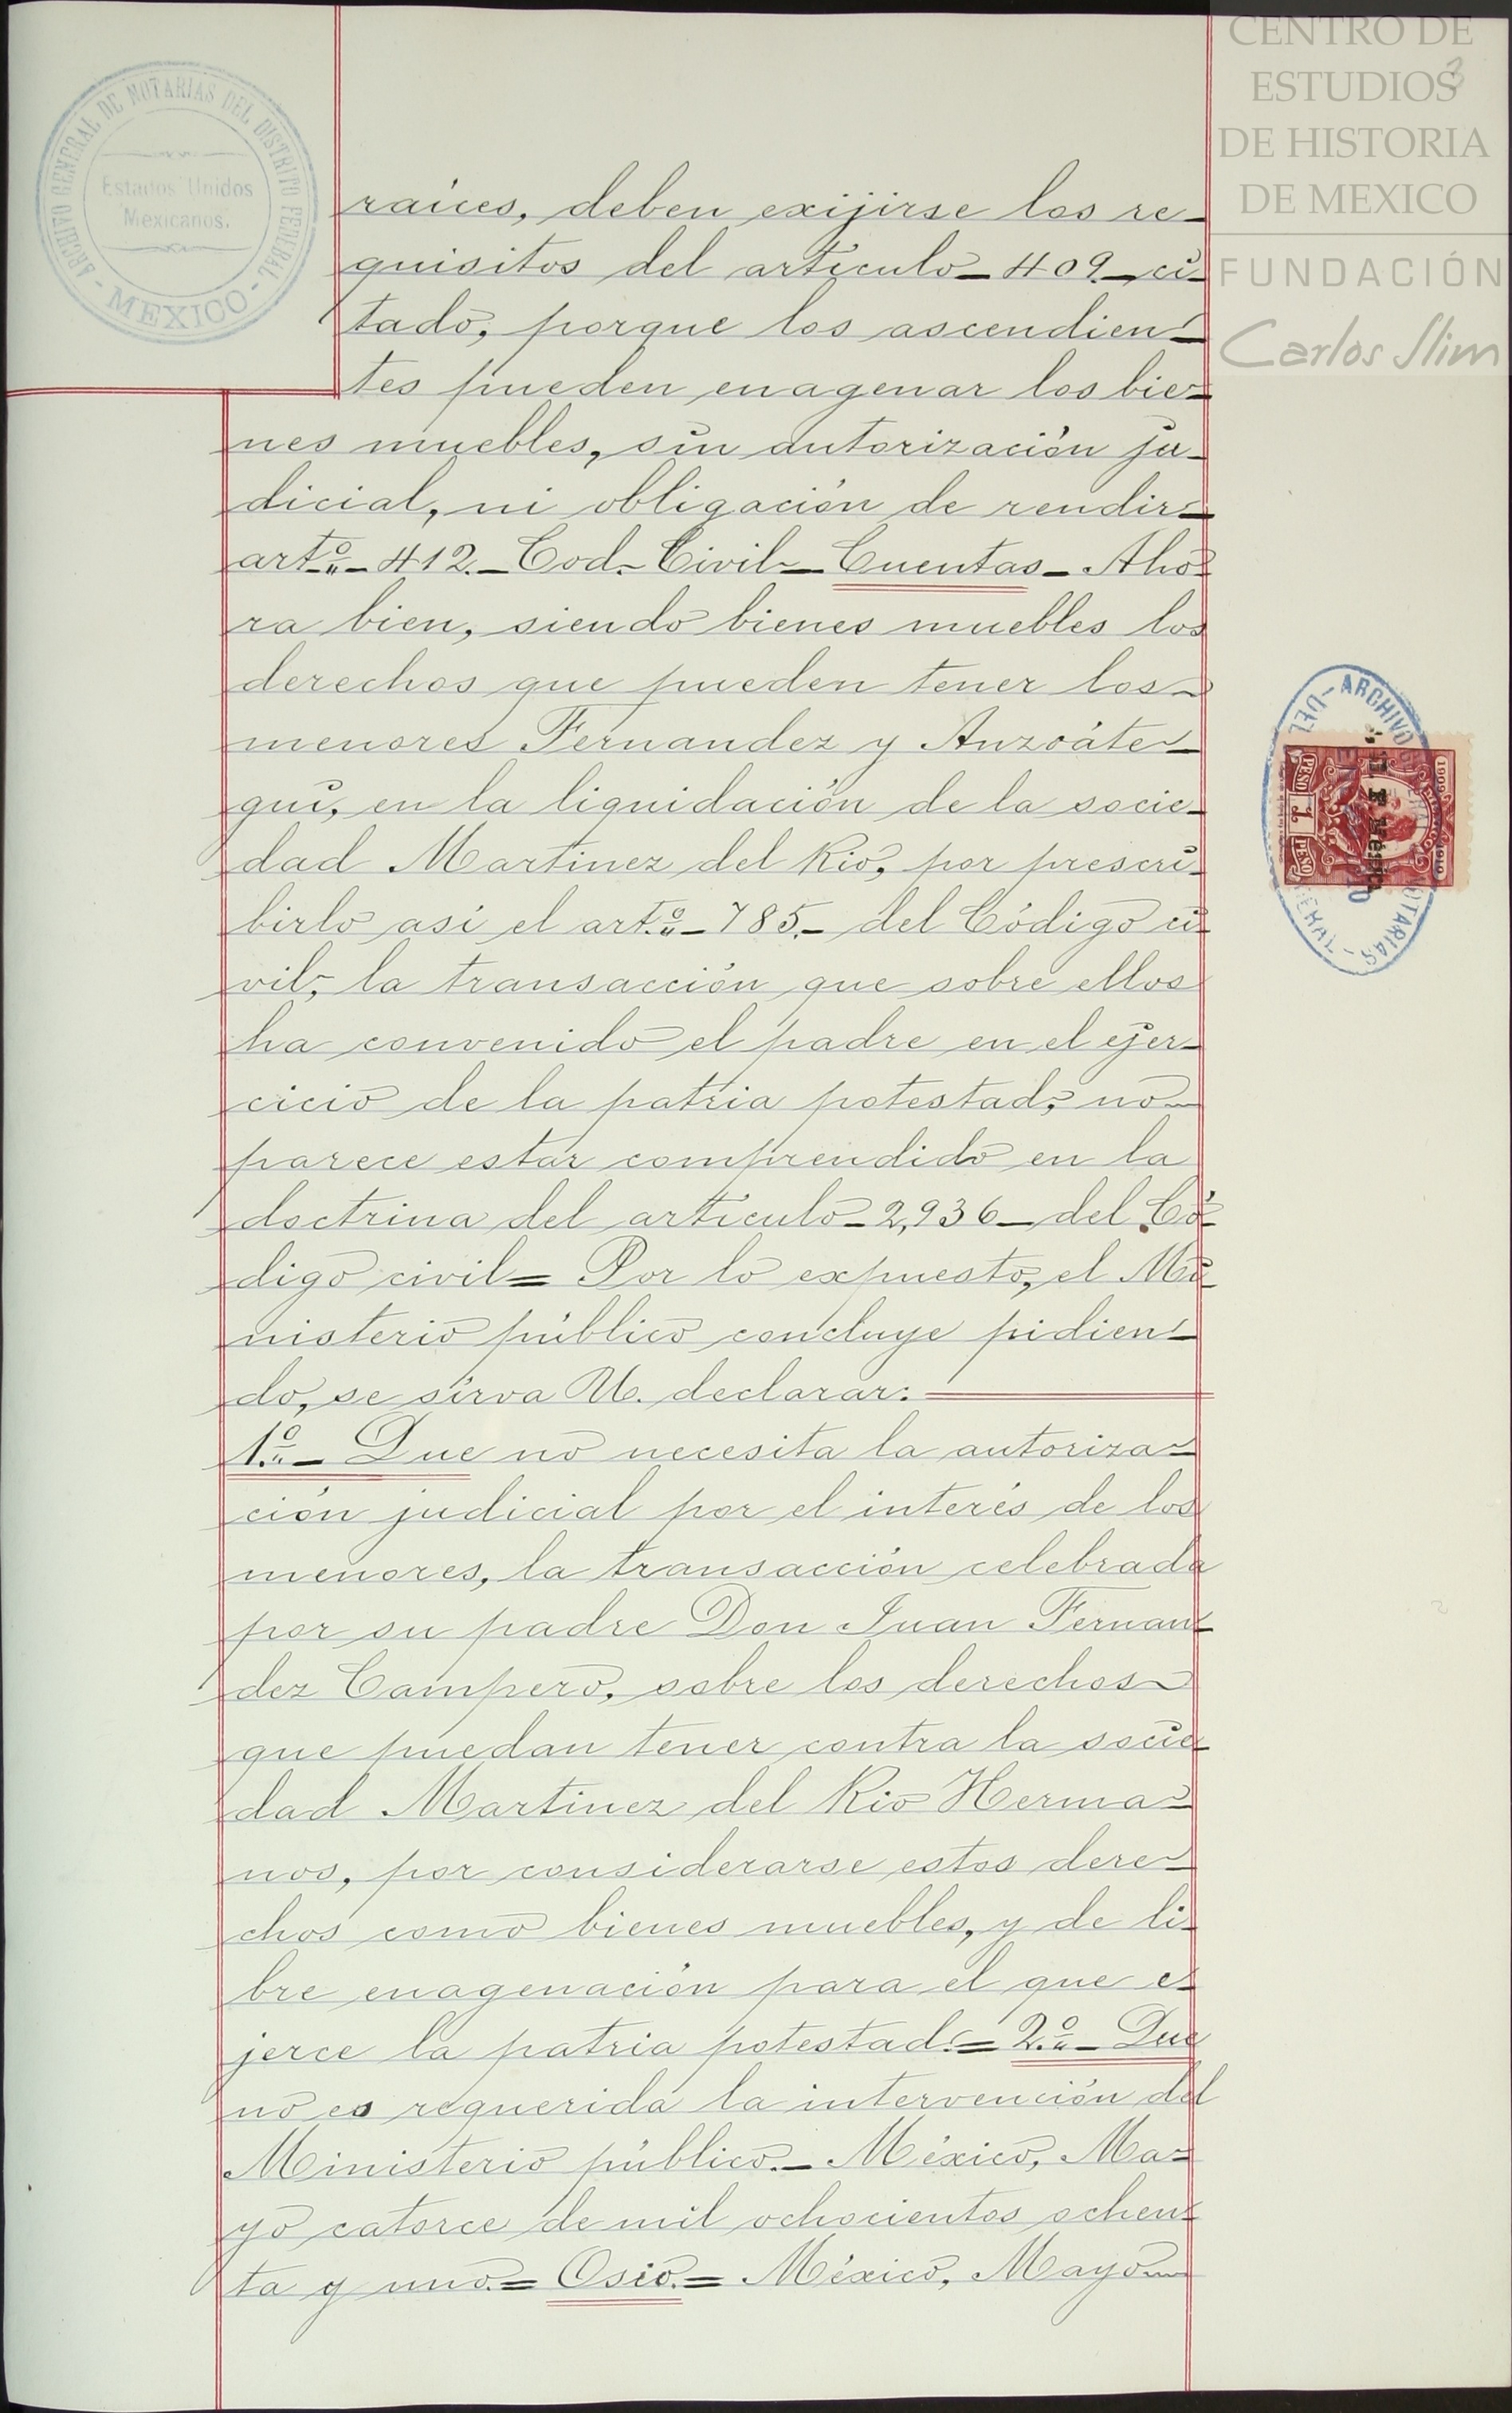 CENTRO DE
ESTUDIOS
DE HISTORIA
DE MEXICO
FUNDACIÓN
Carlos Slim
3
ARCHIVO GENERAL DE NOTARIAS DEL DISTRITO FEDERAL
- MEXICO -
Estados Unidos
Mexicanos.
raíces, deben exijirse los re-
quisitos del artículo_ 409_ ci-
tado, porque los ascendien-
tes pueden enagenar los bie-
nes muebles, sin autorización ju-
dicial, ni obligación de rendir-
artº_ 412_ Cod. Civil_ Cuentas_ Aho-
ra bien, siendo bienes muebles los
derechos que pueden tener los
menores Fernandez y Anzoáte-
gui, en la liquidación de la socie-
dad Martinez del Rio, por prescri-
birlo así el artº_ 785_ del Código ci-
vil, la transacción que sobre ellos
ha convenido el padre en el ejer-
cicio de la patria potestad, no
parece estar comprendido en la
doctrina del artículo_ 2,936_ del Có-
digo civil= Por lo expuesto, el Mi-
nisterio público concluye pidien-
do, se sirva U. declarar:
1º_ Que no necesita la autoriza-
ción judicial por el interés de los
menores, la transacción celebrada
por su padre Don Juan Fernan-
dez Campero, sobre los derechos
que puedan tener contra la socie-
dad Martinez del Rio Herma-
nos, por considerarse estos dere-
chos como bienes muebles, y de li-
bre enagenación para el que e-
jerce la patria potestad.= 2º_ Que
no es requerida la intervención del
Ministerio público._ México, Ma-
yo catorce de mil ochocientos ochen-
ta y uno.= Osio.= México, Mayo
DEL - ARCHIVO
NOTARIAS
1909 1910
PESO 1 PESO
México